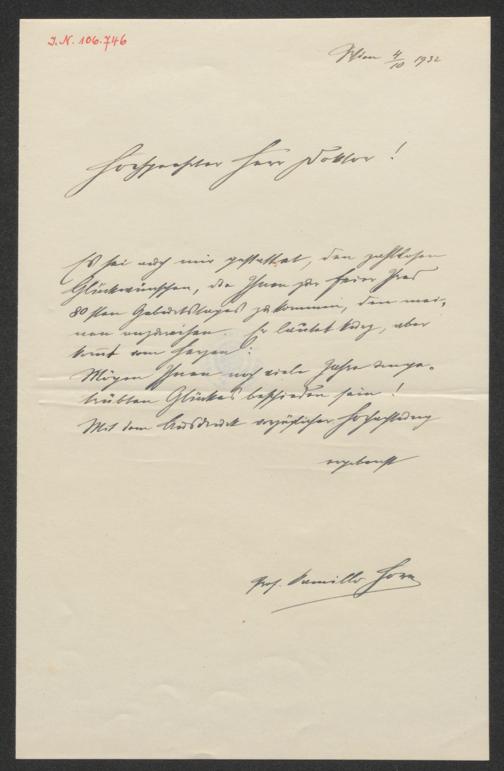 I.N. 106.746
Wien 4/10 1932
Hochgeehrter Herr Doktor!
Es sei auch mir gestattet, den zahllosen
Glückwünschen, die Ihnen zur Feier Ihres
80sten Geburtstages zukommen, den mei-
nen anzureihen. Er lautet kurz, aber
kommt vom Herzen:
Mögen Ihnen noch viele Jahre unge-
trübten Glückes beschieden sein!
Mit dem Ausdruck vorzüglicher Hochachtung
ergebenst
Prof. Camillo Horn